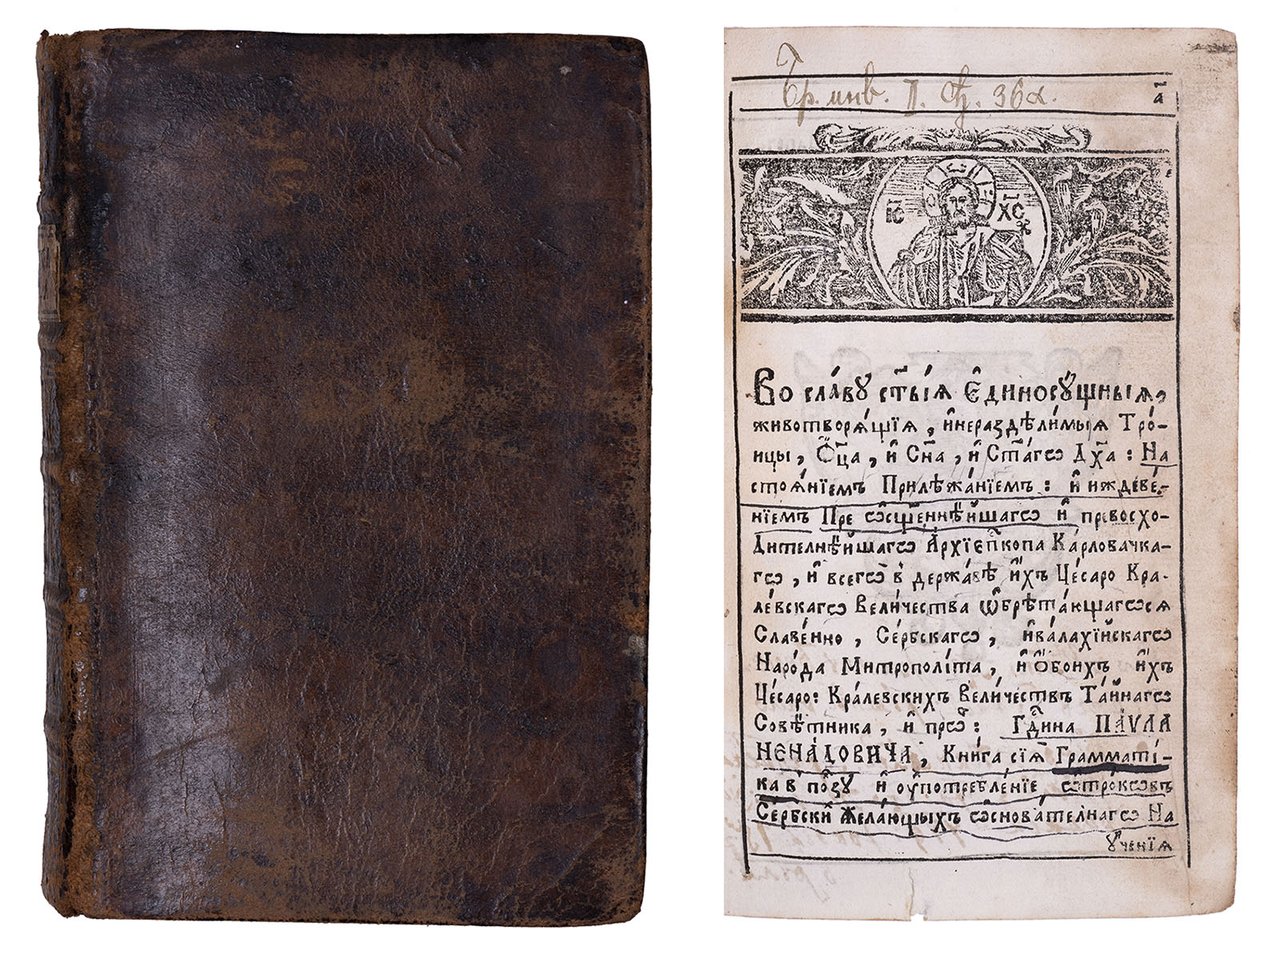 Бр. инв. II. 36α.
а҃
ІС ХС
Во сла́ву ст҃ы́ѧ Є҆диносꙋ́щныѧ,
животворѧ́щїѧ, и҆нераздѣли́мыѧ Тро́-
ицы, Ѻ҆ц҃а, и҆ Сн҃а, и҆ Ст҃а́гѡ Дх҃а: На
стоѧ́нїемъ Прилѣжа́нїемъ: и҆ иждеве́-
нїемъ Пре ѡ҆сщ҃е́ннѣйшагѡ и҆ превосхо-
Дителнѣ́йшагѡ А҆рхїеп҃копа Ка́рловачка-
гѡ, и҆ всегѡ̀ в держа́вѣ и҆́хъ Це́саро Кра-
ле́вскагѡ Вели́чества ѡ҆брѣта́ющагѡсѧ
Славе́нно, Се́рбскагѡ, и҆вала́хїйскагѡ
Наро́да Митрополі́та, и҆ Ѻ҆бои́хъ и҆́хъ
Це́саро: Крале́вскихъ Вели́чествъ Та́йнагѡ
Совѣ́тника, и҆ про́ѡ: Гд҃ина ПА́ѴЛА
НЕНА́ДОВИЧА, Кни́га сїѧ̀ Грамматі́-
ка в по́лзꙋ и҆ оу҆потребле́нїе ѡтрокѡвъ
Се́рбски Жела́ющыхъ ѡ҆снова́телнагѡ На
ꙋче́нїѧ